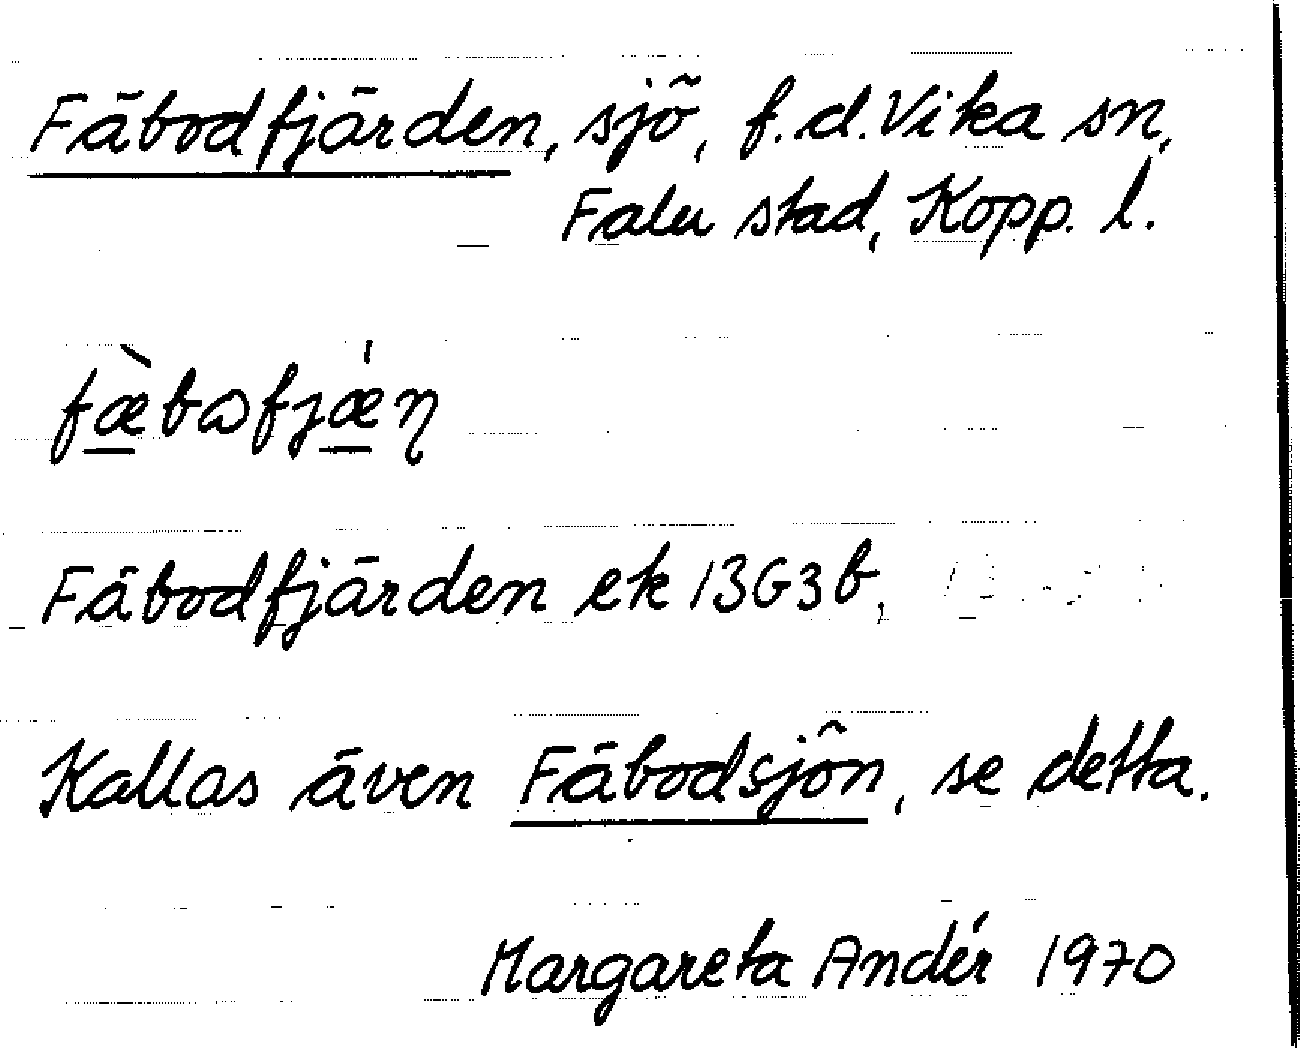 Fäbodfjärden, sjö, f.d. Vika sn,
Falu stad, Kopp. l.
fæ̠̀bɷfjǽ̠ṇ
Fäbodfjärden ek 13G3b,
Kallas även Fäbodsjön, se detta.
Margareta Andér 1970